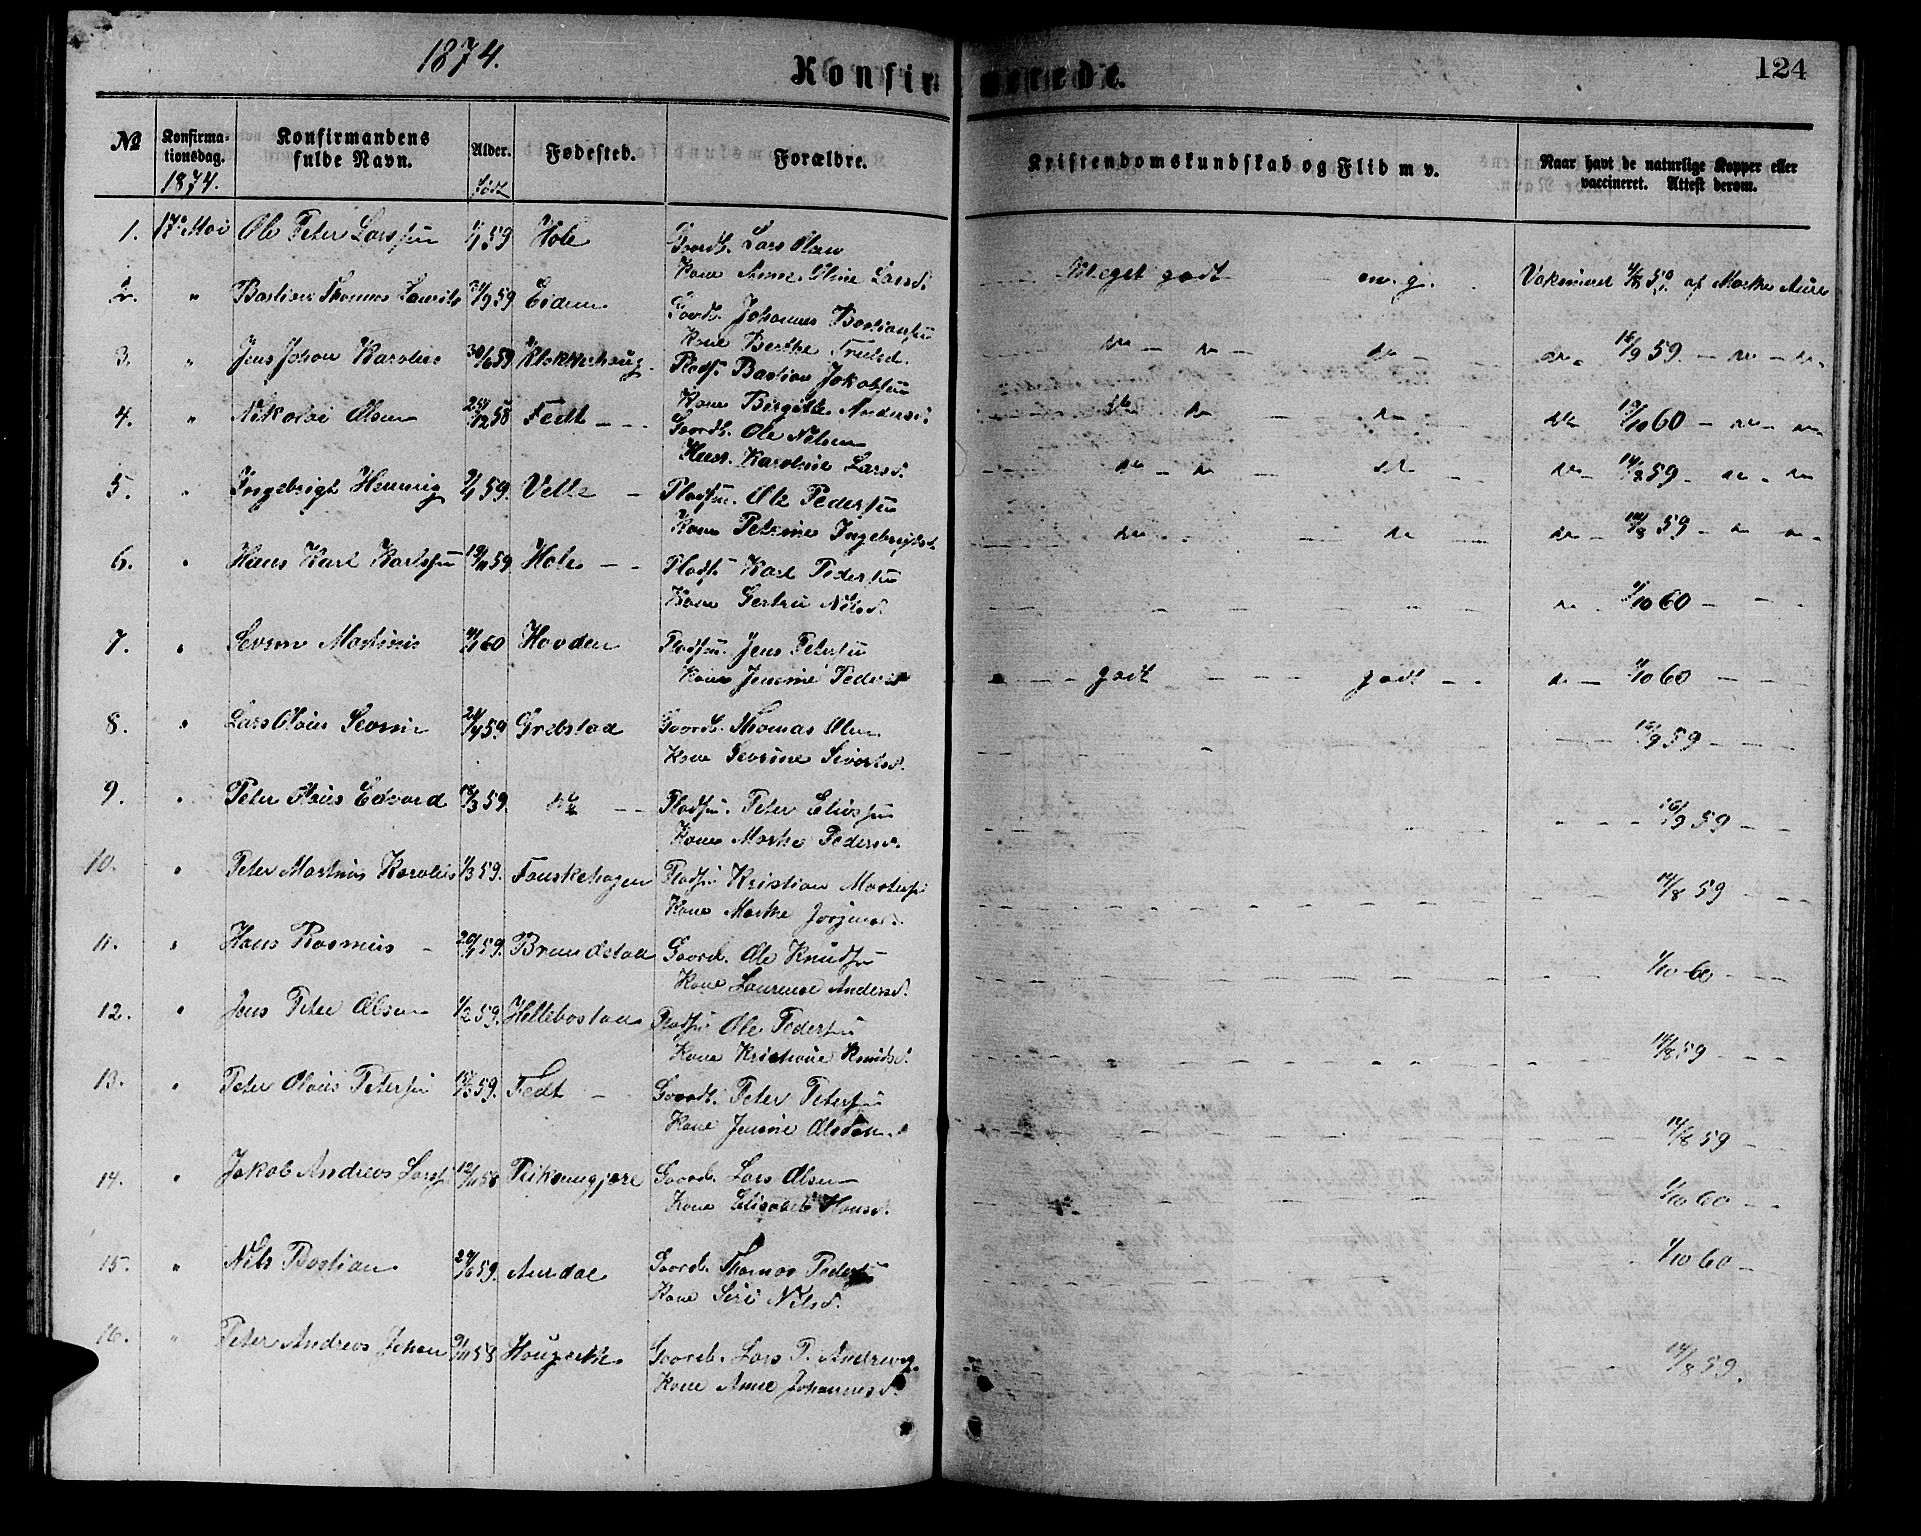 1874.
Konfirmerede.
124
No
Konfirma-
tionsdag.
1874.
Konfirmandens
fulde Navn.
Alder.
Født
Fødested.
Forældre.
Kristendomskundskab og Flid m v.
Naar havt de naturlige Kopper eller
vaccineret. Attest derom.
1. 17de Mai Ole Peter Larssen 59 Hole Gaardb. Lars Olsen
Kone Anne Oline Larsd. Meget godt m. g. Vaksineret 59 af Marthe Aure
2. " Bastian Thomas Laurits 59 Eidem Gaardb. Johannes Bastiansen
Kone Berthe Trulsd. do - do - do - do 16/9 59 - do - do -
3. " Jens Johan Karolus 30/6 59 Klokkerhaug Pladsm. Bastian Jakobsen
Kone Birgitte Andersd. do do - do - do 10 60 - do - do -
4. " Nikolai Olsen 58 Fedt - - - Gaardb. Ole Nilsen
Hust. Karoline Larsd. do - do do do - 59 - do - do
5. " Ingebrigt Henning 59. Velle - Pladsm. Ole Pedersen
Kone Petrine Ingebrigtsd. do - - do do - 14/8 59 - do do -
6. " Hans Karl Karlssen 59. Hole - - Pladsm. Karl Pedersen
Kone Gertru Nilsd. do - 1/10 60 - - -
7. " Martinus 60 Hovden Pladsm. Jens Petersen
Kone Jensine Peders godt - - - - godt - - do - 1/10 60 - - -
8. " Lars Olaus Severin 59. Grebstad Gaardb. Thomas Olsen
Kone Severine Sivertsd. 16/9 59 - - -
9. " Peter Olaus Edvard /3 59. do - - Pladsm. Peter Eliassen
Kone Marthe Pedersd. 16/9 59 - - -
10. " Peter Martinus Karolus /3 59. Fauskehagen Pladsm. Kristian
Kone Marthe 14/8 59 - - -
11. " Hans Rasmus - 59. Brandstad Gaardb. Ole Knudsen
Kone Laurense Andersd. 1/10 60 - - -
12. " Jens Peter Olsen 1/2 59. Hellebostad Pladsm. Ole Pedersen
Kone Kristiane Knudsd. 14/8 59 - - -
13. " Peter Olaus Petersen 59. Fedt - Gaardb. Peter Petersen
Kone Jensine 14/8 59 -
14. " Jakob Andreas Larss. 12/11 58 Gaardb. Lars Olsen
Kone Elisabeth Hansd. 1/10 60 - -
15. " Nils Bastian 59. Aurdal Gaardb. Thomas Pedersen
Kone Siri Nilsd. 1/10 60 -
16. " Peter Andreas Johan 9/11 58 Gaardb. Lars P.
Kone Anne Johannesd. 14/8 59.